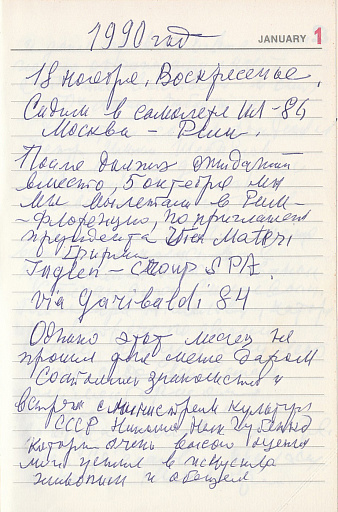 1990 год
JANUARY 1
18 ноября, Воскресенье,
Сидим в самолете Ил-84
Москва – Рим.
После долгих ожиданий
вместо, 5 октября мы
мы вылетали в Рим-
-Флоренцию, по приглашен
президента
Фирмы
Group SPA
Via Garibaldi 84
Однако этот месяц не
прошел для меня даром
Состоялись знакомства и
встреча с министром культуры
СССР Никол Губенко
который очень высоко оценил
мои успехи в искусстве
живописи и обещал